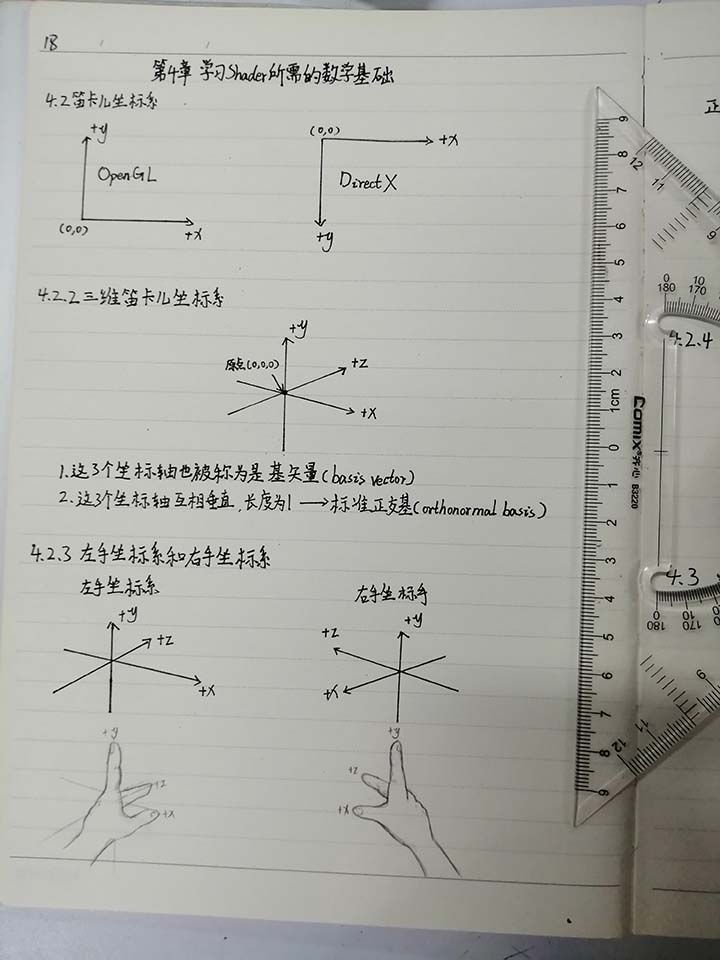 18
第4章 学习Shader所需的数学基础
4.2 笛卡儿坐标系
+y
OpenGL
(0,0)
+x
(0,0)
+x
DirectX
+y
4.2.2 三维笛卡儿坐标系
+y
原点(0,0,0)
+z
+x
1.这3个坐标轴也被称为是基矢量(basis vector)
2.这3个坐标轴互相垂直,长度为1 → 标准正交基(orthonormal basis)
4.2.3 左手坐标系和右手坐标系
左手坐标系
+y
+z
+x
右手坐标手
+y
+z
+x
+y
+z
+x
+y
+z
+x
正
4.2.4
4.3
9
8
7
6
5
4
3
2
1cm
0
1
2
3
4
5
6
7
8
9
Comix 齐心 B3220
12
11
9
0
180
10
170
180
0
170
10
160
20
9
11
12